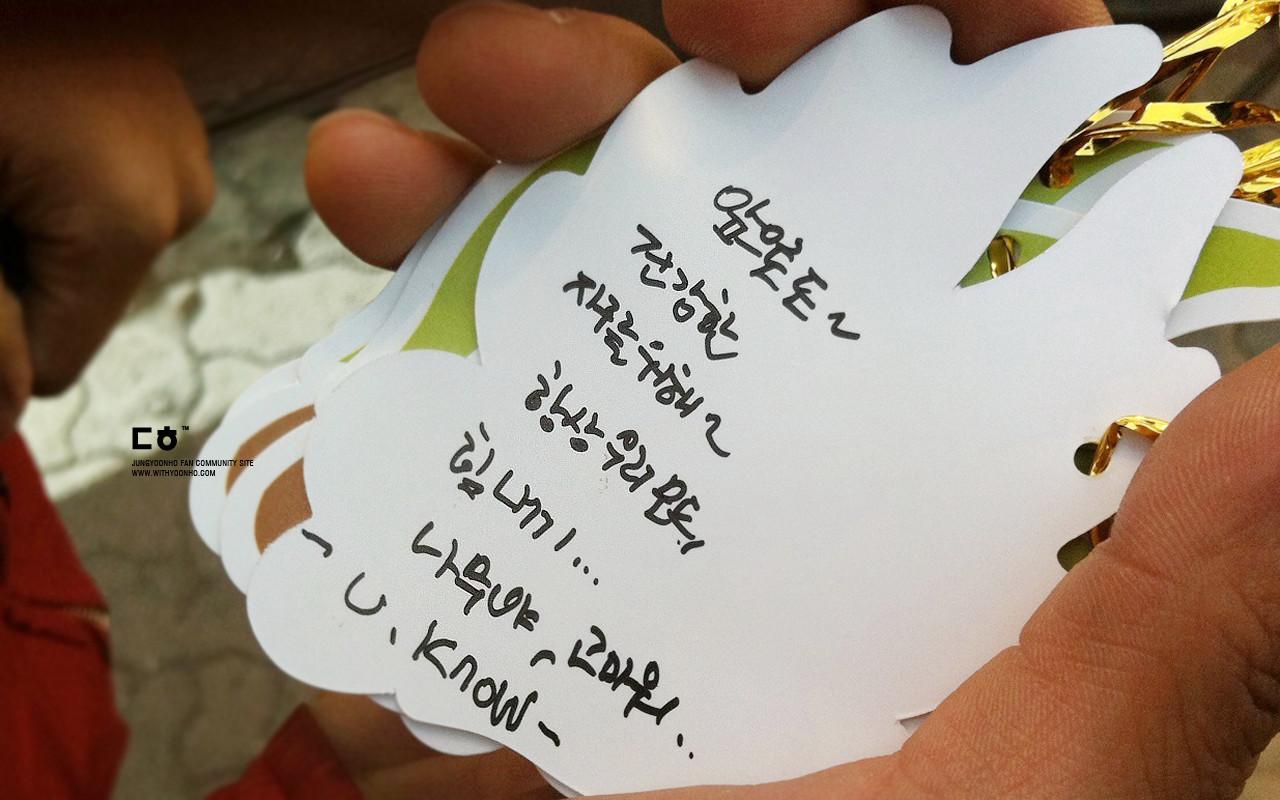 건강한
지구를 위해~
항상 우리 모두
힘 내기...
나무야, 고마워..
- U. Know -
ㄷㅎ™
JUNGYOONHO FAN COMMUNITY SITE
WWW.WITHYOONHO.COM